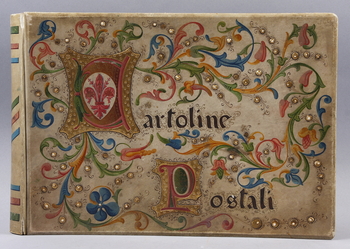 Cartoline
Postali